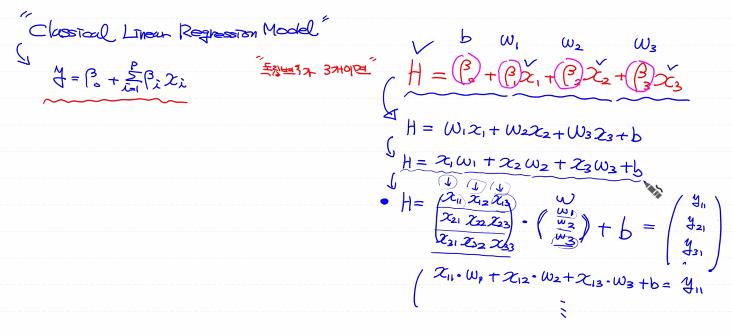 "Classical Linear Regression Model"
y = β₀ + Σᵢ₌₁ᵖ βᵢ xᵢ
"독립변수가 3개이면"
b w₁ w₂ w₃
H = β₀ + β₁x₁ + β₂x₂ + β₃x₃
H = w₁x₁ + w₂x₂ + w₃x₃ + b
H = x₁w₁ + x₂w₂ + x₃w₃ + b
w
H = (x₁₁ x₁₂ x₁₃ · (w₁ + b = (y₁₁
x₂₁ x₂₂ x₂₃ w₂ y₂₁
x₂₁ x₃₂ x₃₃) w₃) y₃₁)
( x₁₁·w₁ + x₁₂·w₂ + x₁₃·w₃ + b = y₁₁
⋮